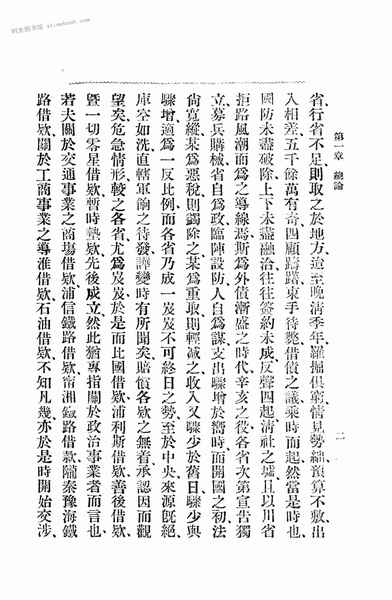 第一章 總論
二
省行省不足則取之於地方迨至晚清季年羅掘俱窮情見勢絀預算不敷出
入相差五千餘萬有奇四顧躊躇束手待斃借債之議乘時而起然當是時也、
國防未盡破除上下未盡融洽往往簽約未成反聲四起清社之墟且以川省
拒路風潮而爲之導線焉斯爲外債漸盛之時代辛亥之役各省次第宣告獨
立、募兵購械省自爲政臨陣設防人自爲謀支出驟增於嚮時而開國之初法
尙寬縱某爲惡稅則蠲除之某爲重取則輕減之收入又驟少於舊日驟少與
驟增適爲一反比例而各省乃成一岌岌不可終日之勢至於中央來源既絕、
庫空如洗直轄軍餉之待發譁變時有所聞矣賠償各欵之無着承認因而觀
望矣危急情形較之各省尤爲岌岌於是而比國借欵浦利斯借欵善後借欵
曁一切零星借欵暫時墊欵先後成立然此猶專指關於政治事業者而言也、
若夫關於交通事業之商塲借欵浦信鐵路借欵甯湘鐵路借款隴秦豫海鐵
路借欵關於工商事業之導淮借欵石油借欵不知凡幾亦於是時開始交涉、